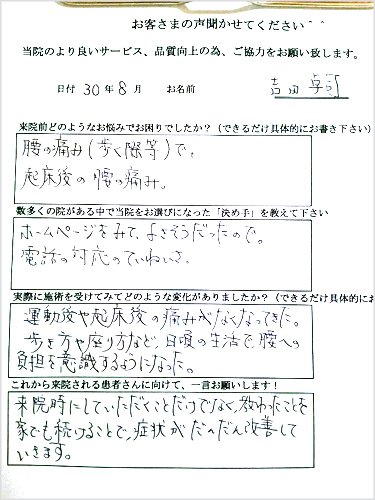 お客さまの声聞かせてください＾＾
当院のより良いサービス、品質向上の為、ご協力をお願い致します。
日付 30年8月 お名前 吉田 卓司
来院前どのようなお悩みでお困りでしたか？（できるだけ具体的にお書き下さい）
腰の痛み(歩く際等)で。
起床後の腰の痛み。
数多くの院がある中で当院をお選びになった「決め手」を教えて下さい
ホームページをみて、よさそうだったので。
電話の対応のていねいさ。
実際に施術を受けてみてどのような変化がありましたか？（できるだけ具体的にお
運動後や起床後の痛みがなくなってきた。
歩き方や座り方など、日頃の生活で腰への
負担を意識するようになった。
これから来院される患者さんに向けて、一言お願いします！
来院時にしていただくことだけでなく、教わったことを
家でも続けることで、症状がだんだん改善して
いきます。